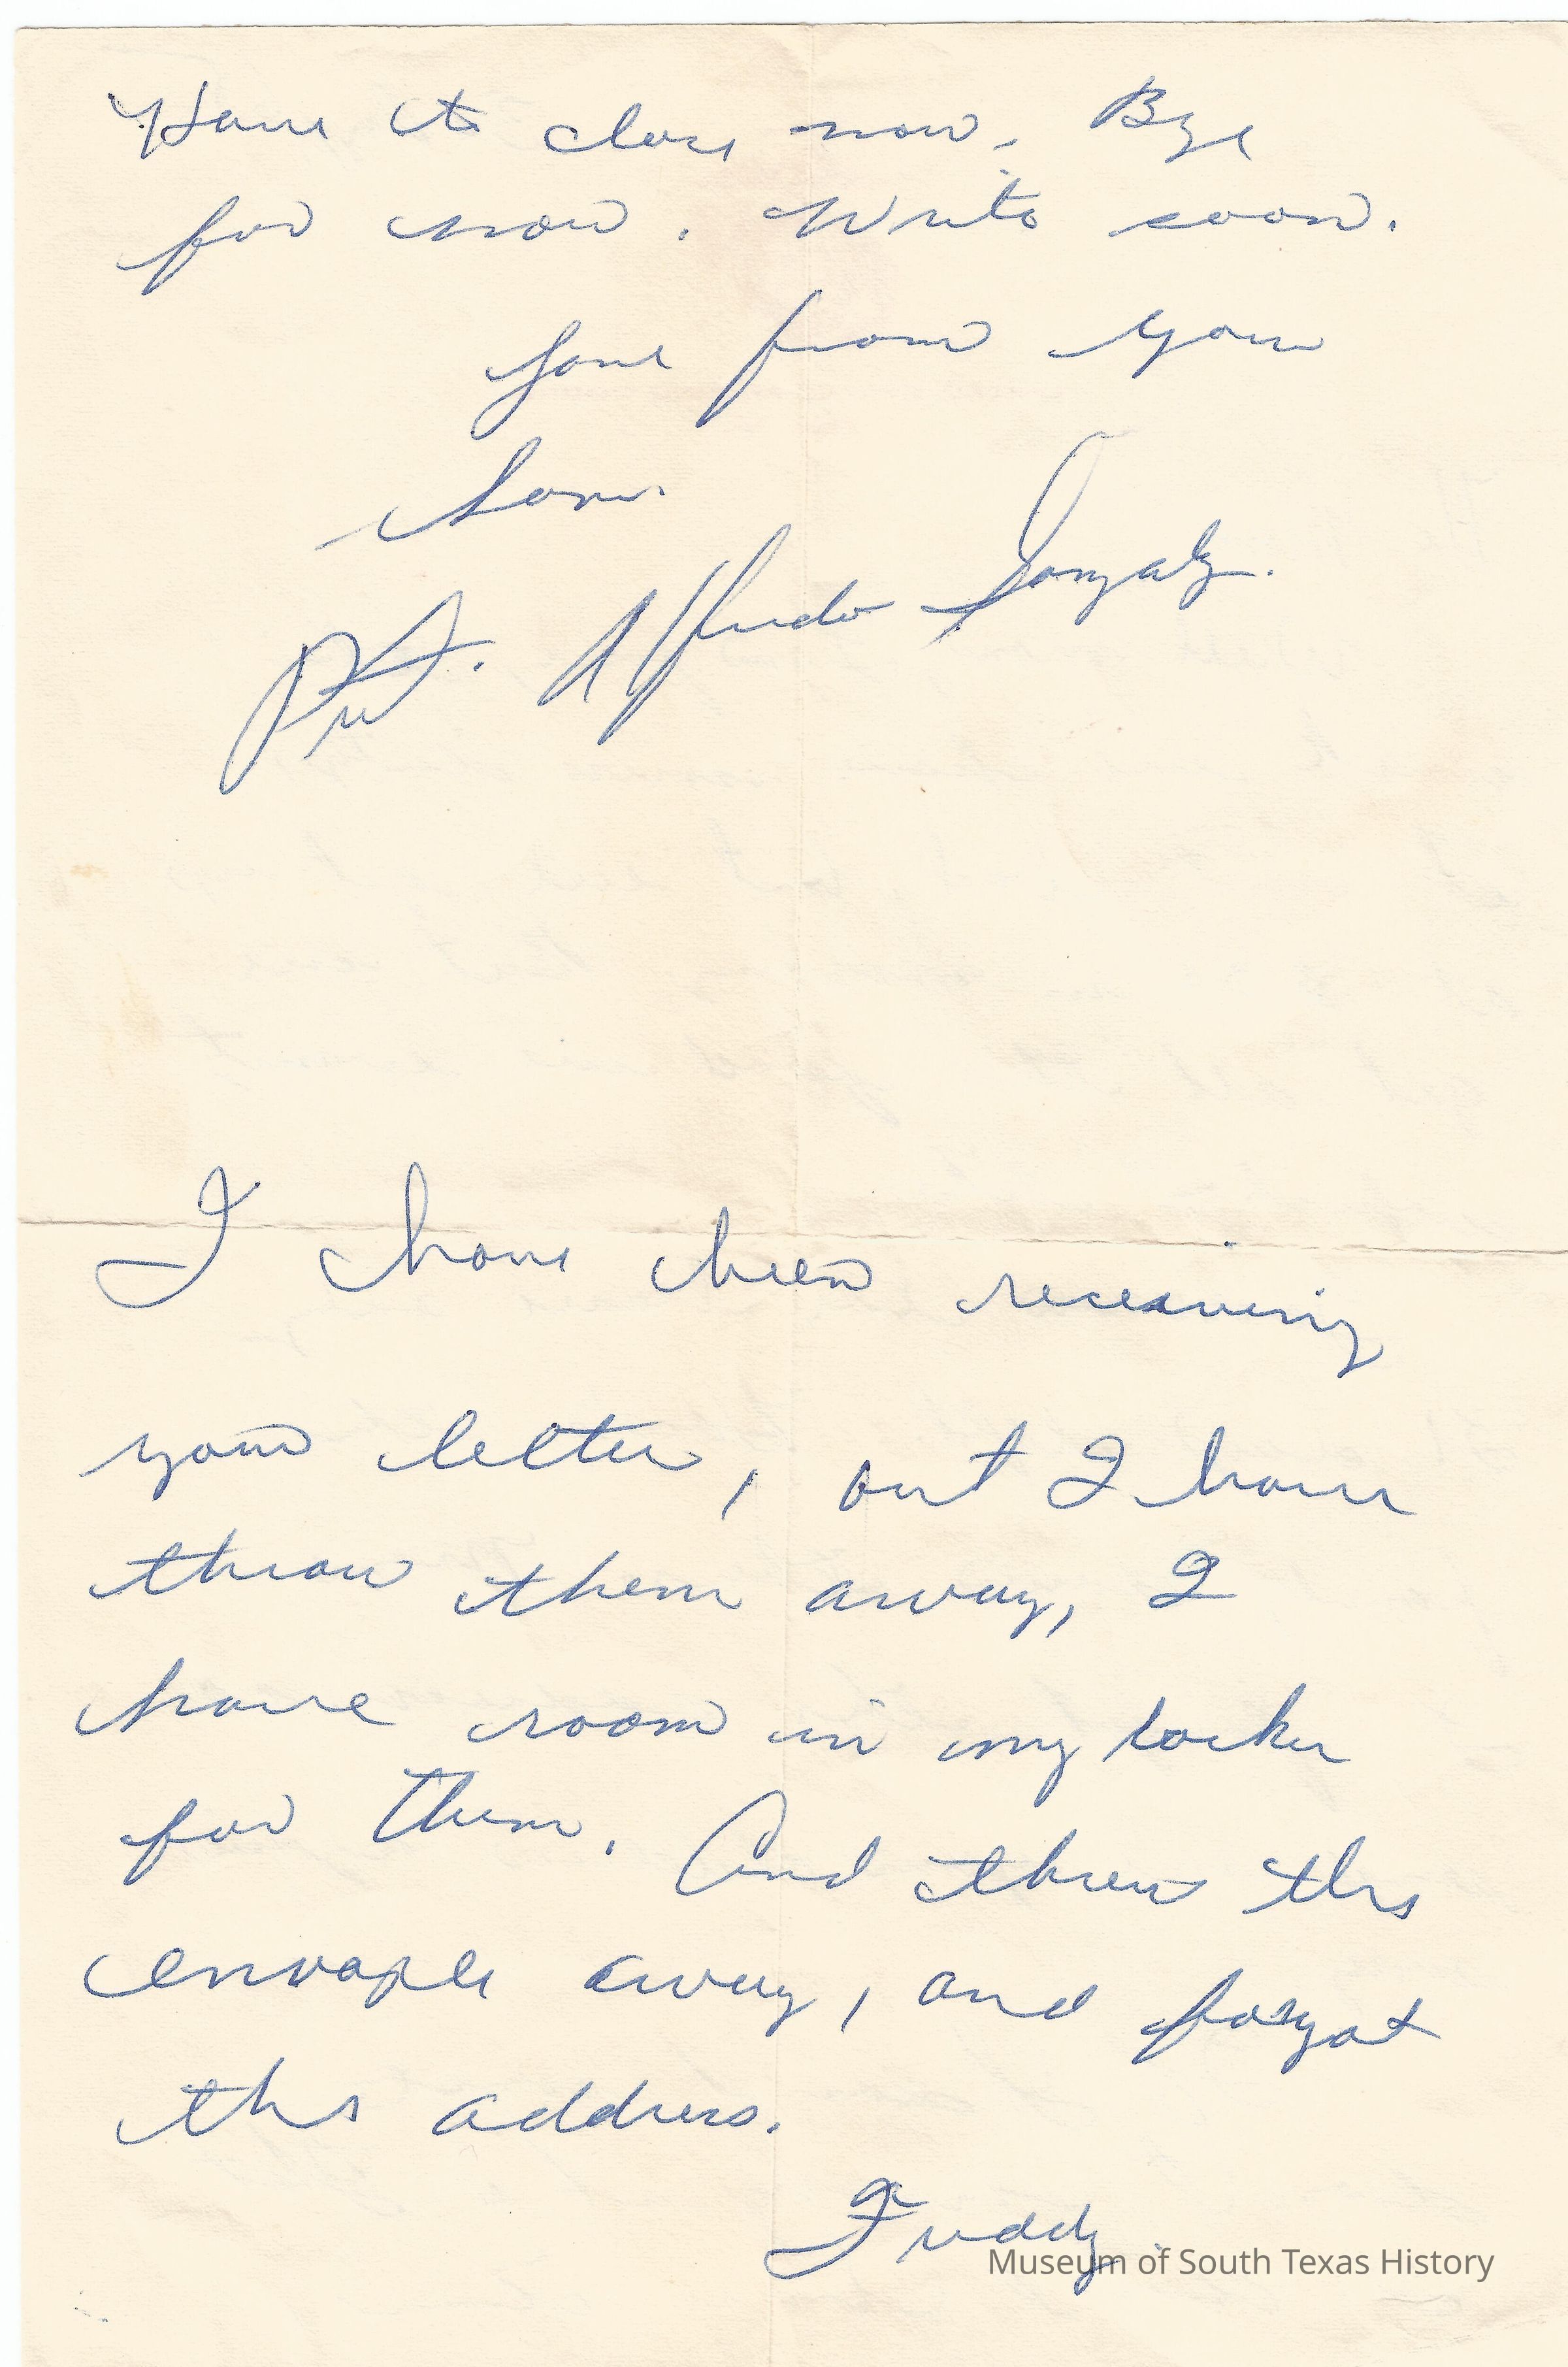 Have to close now. Bye
for now. Write soon.
Love from your
Son.
Pvt. Alfredo Gonzalez.
I have been receiving
your letter, but I have
throw them away, I
have room in my locker
for them. And threw the
envople away, and forgot
the address.
Freddy.
Museum of South Texas History